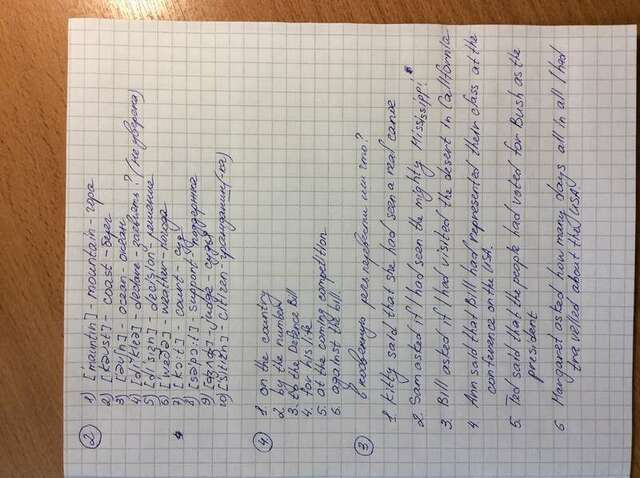 2
1) ['mauntin] - mountain - гора
2) [kəust] - coast - берег
3) ['əuʃn] - ocean - океан
4) [di'kleə] - declare - заявлять? (не уверена)
5) [di'siʒn] - decision - решение
6) ['weðə] - weather - погода
7) [kɔ:t] - court - суд
8) [səpɔ:t] - support - поддержка
9) judge - судья
10) ['sitizn] - citizen - гражданин(-ка)
4
1. on the country
2 by the number
3. to the Defence Bill
4. for is the
5. at the coming competition
6. against the bill.
3
в косвенную речь перевести или что?
1. Kitty said that she had seen a real canoe
2. Sam asked if I had seen the mighty Mississippi.
3. Bill asked if I had visited the desert in California
4 Ann said that Bill had represented their class at the
conference on the USA.
5 Ted said that the people had voted for Bush as the
president
6 Margarat asked how many days all in all I had
travelled about the USA